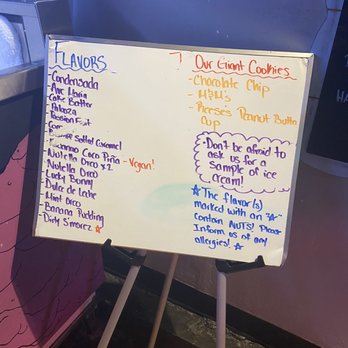 FLAVORS
- Condensada
- Ave Maria
- Cake Batter
- Palooza
- Passion Fruit
Salted Caramel
Coco Piña - Vegan!
- Nutella Oreo x2
- Nutella Oreo
- Lucky Bunny
- Dulce de Leche
- Mint Oreo
- Banana Pudding
- Dirty S'morez ☆
Our Giant Cookies
- Chocolate Chip
- M&M's
- Reese's Peanut Butter
Cup
Don't be afraid to
ask us for a
sample of ice
cream!
☆ The flavor(s)
marked with an ☆
Contain NUTS! Please
Inform us of any
allergies! ☆